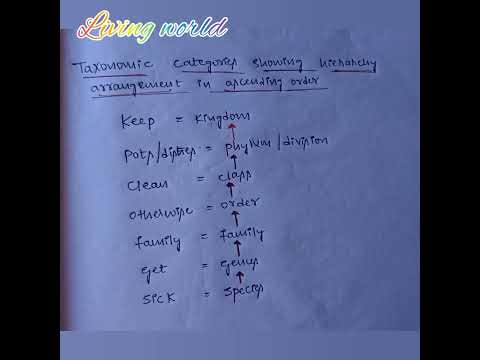 Living world
Taxonomic categories showing hierarchy
arrangement in ascending order
Keep = Kingdom
Pots/dishes = phylum/division
Clean = class
Otherwise = order
family = family
Get = Genus
Sick = Species